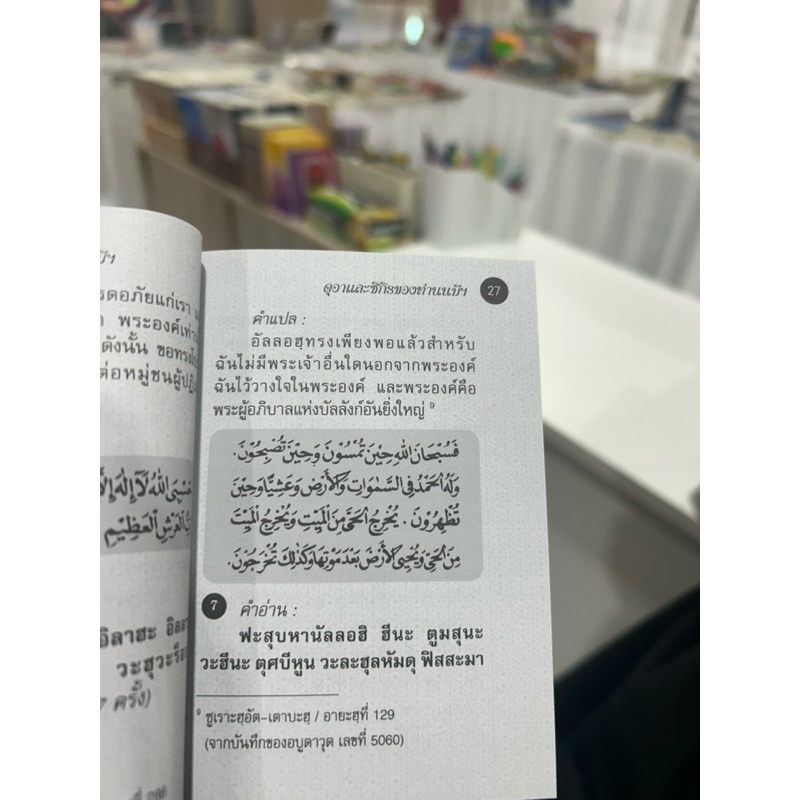 นบีฯ
รดอภัยแก่เรา
พระองค์เท่า
ดังนั้น ขอทรงโ
ต่อหมู่ชนผู้ปฏิ
حَسْبِيَ اللهُ لَآ إِلٰهَ إِلَّا
بُّ الْعَرْشِ الْعَظِيْمِ
อิลาฮะ อิลล
วะฮุวะร็อ
ครั้ง)
ดุอาและซิกิรของท่านนบีฯ 27
คำแปล :
อัลลอฮฺทรงเพียงพอแล้วสำหรับ
ฉันไม่มีพระเจ้าอื่นใดนอกจากพระองค์
ฉันไว้วางใจในพระองค์ และพระองค์คือ
พระผู้อภิบาลแห่งบัลลังก์อันยิ่งใหญ่ ⁹
فَسُبْحَانَ اللهِ حِيْنَ تُمْسُوْنَ وَحِيْنَ تُصْبِحُوْنَ.
وَلَهُ الْحَمْدُ فِي السَّمٰوَاتِ وَالْأَرْضِ وَعَشِيًّا وَحِيْنَ
تُظْهِرُوْنَ. يُخْرِجُ الْحَيَّ مِنَ الْمَيِّتِ وَيُخْرِجُ الْمَيِّتَ
مِنَ الْحَيِّ وَيُحْيِي الْأَرْضَ بَعْدَ مَوْتِهَا وَكَذٰلِكَ تُخْرَجُوْنَ.
7 คำอ่าน :
ฟะสุบหานัลลอฮิ ฮีนะ ตูมสุนะ
วะฮีนะ ตุศบีหูน วะละฮุลหัมดุ ฟิสสะมา
⁹ ซูเราะฮฺอัต-เตาบะฮฺ / อายะฮฺที่ 129
(จากบันทึกของอบูดาวุด เลขที่ 5060)